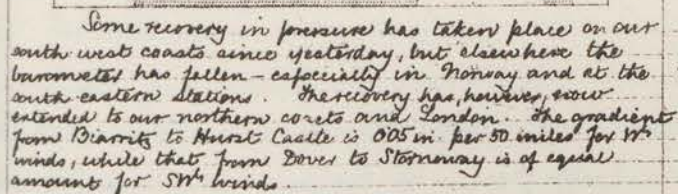 Some recovery in pressure has taken place on our
south west coasts since yesterday, but elsewhere the
barometer has fallen - especially in Norway and at the
south eastern stations. The recovery has, however, now
extended to our northern coasts and London. The gradient
from Biarritz to Hurst Castle is 0.05 in. per 50 miles for Wly
winds, while that from Dover to Stornoway is of equal
amount for SWly winds.